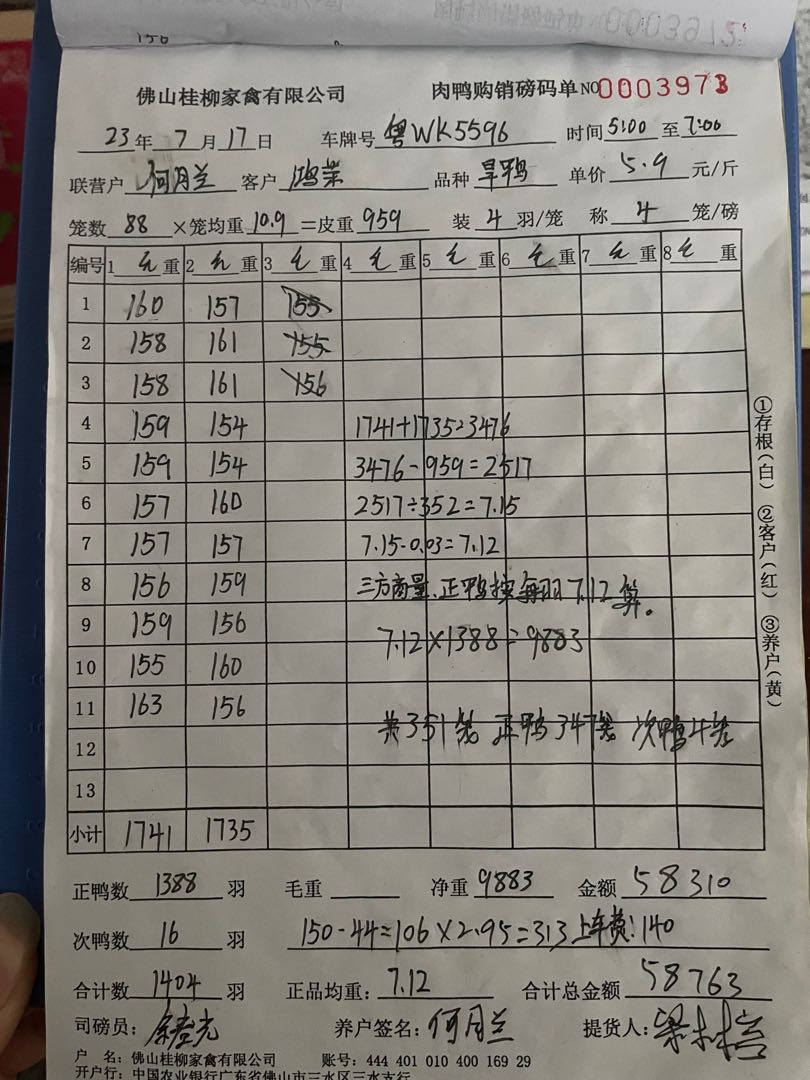 150
佛山桂柳家禽有限公司 肉鸭购销磅码单 NO 0003973
23年 7月 17日 车牌号 粤WK5596 时间 5:00 至 7:00
联营户 何月兰 客户 鸿荣 品种 旱鸭 单价 5.9 元/斤
笼数 88 ×笼均重 10.9 =皮重 959 装 4 羽/笼 称 4 笼/磅
编号 1 毛 重 2 毛 重 3 毛 重 4 毛 重 5 毛 重 6 毛 重 7 毛 重 8 毛 重
1 160 157 155
2 158 161 155
3 158 161 156
4 159 154 1741+1735=3476
5 159 154 3476-959=2517
6 157 160 2517÷352=7.15
7 157 157 7.15-0.03=7.12
8 156 159 三方商量、正鸭按每羽7.12算。
9 159 156 7.12×1388=9883
10 155 160
11 163 156 共351笼 正鸭347笼 次鸭4笼
12
13
小计 1741 1735
①存根(白) ②客户(红) ③养户(黄)
正鸭数 1388 羽 毛重 净重 9883 金额 58310
次鸭数 16 羽 150-44=106×2.95=313 上车费:140
合计数 1404 羽 正品均重: 7.12 合计总金额 58763
司磅员: 养户签名: 何月兰 提货人:
户 名: 佛山桂柳家禽有限公司 账号: 444 401 010 400 169 29
开户行: 中国农业银行广东省佛山市三水区三水支行